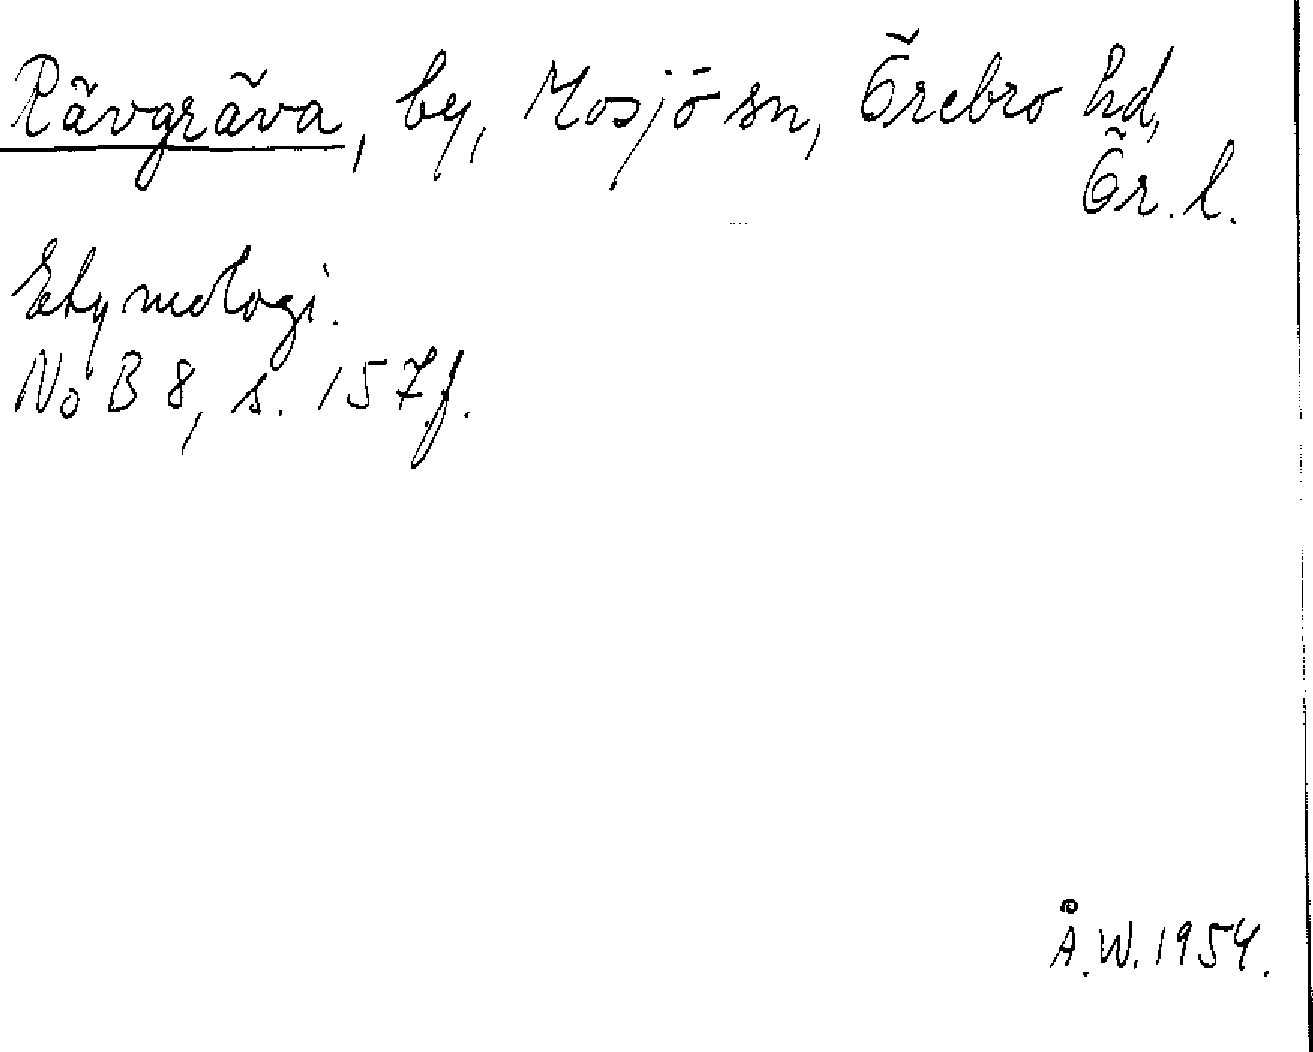 Rävgräva, by, Mosjö sn, Örebro hd,
Ör. l.
Etymologi.
NoB 8, s. 157f.
Å.W. 1954.